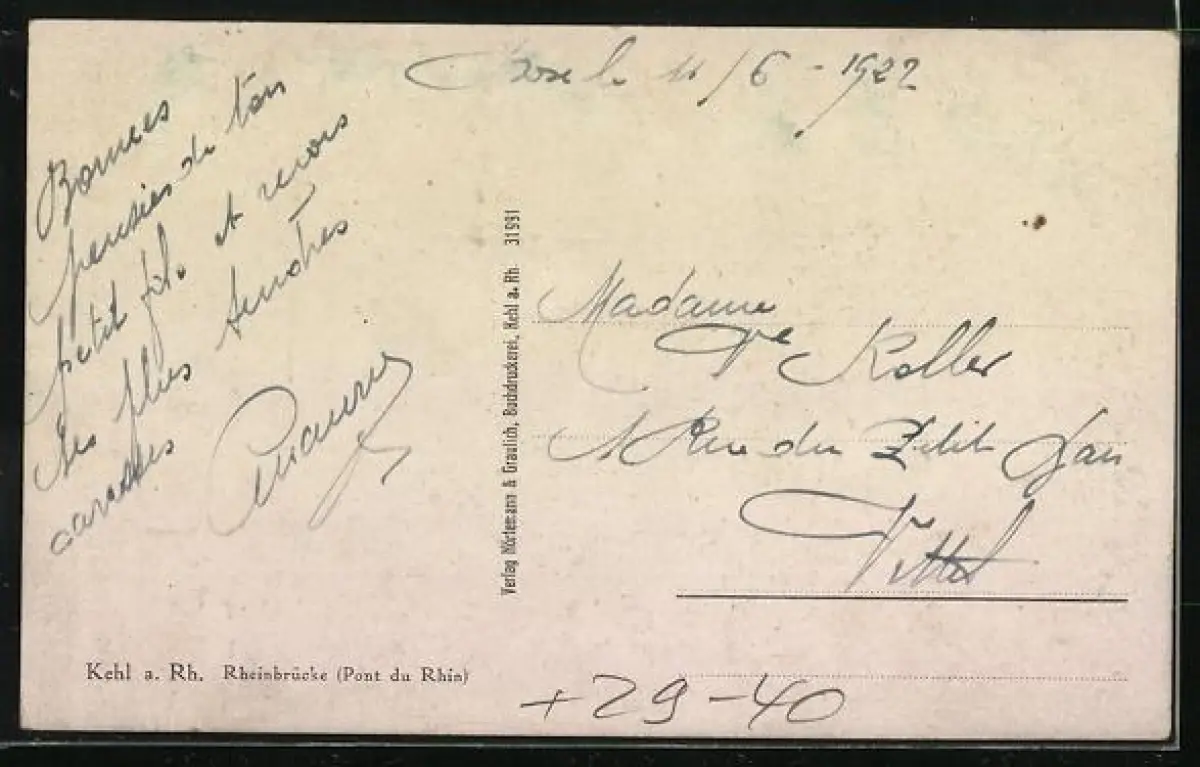 11/6 - 1922
Bonnes
pensées de ton
petit fils et reçois
les plus tendres
caresses
Verlag Hörtemann & Graulich, Buchdruckerei, Kehl a. Rh. 31991
Madame
Ve Koller
Rue du Petit Ban
Vittel
Kehl a. Rh. Rheinbrücke (Pont du Rhin)
+29-40